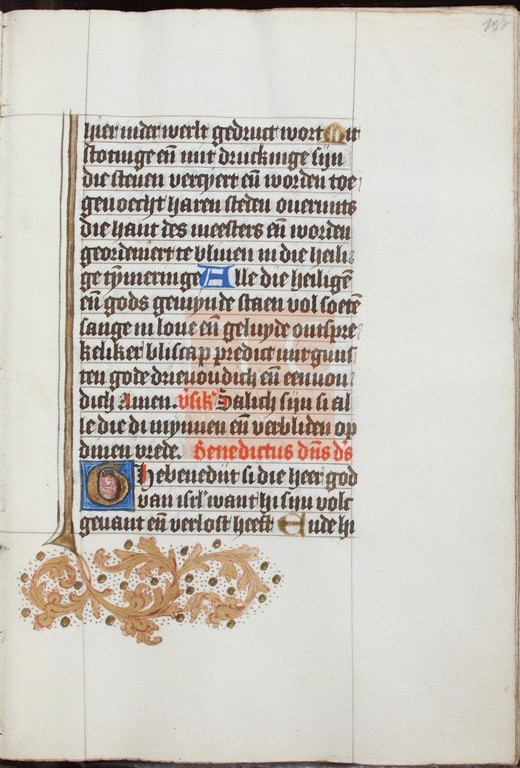 157
hier inder werlt gedruct wort Mit
stotinge eñ mit druckinge sijn
die stenen verciert eñ worden toe
gevoecht haren steden overmits
die hant des meesters eñ worden
geordeneert te bliven in die heili
ge tÿmeringe Alle die heiligē
eñ gods gemÿnde staen vol soetē
sange in love eñ geluyde ontspre
keliker bliscap predict mit guns
ten gode drievoudich eñ eenvou
dich Amen. v̄sik' Salich sijn si al
le die di mynnen eñ verbliden op
dinen vrede. Benedictus dn̄s d's
Ghebenedijt si die heer god
van isrl' want hi sijn volc
gevant eñ verlost heeft Ende hi